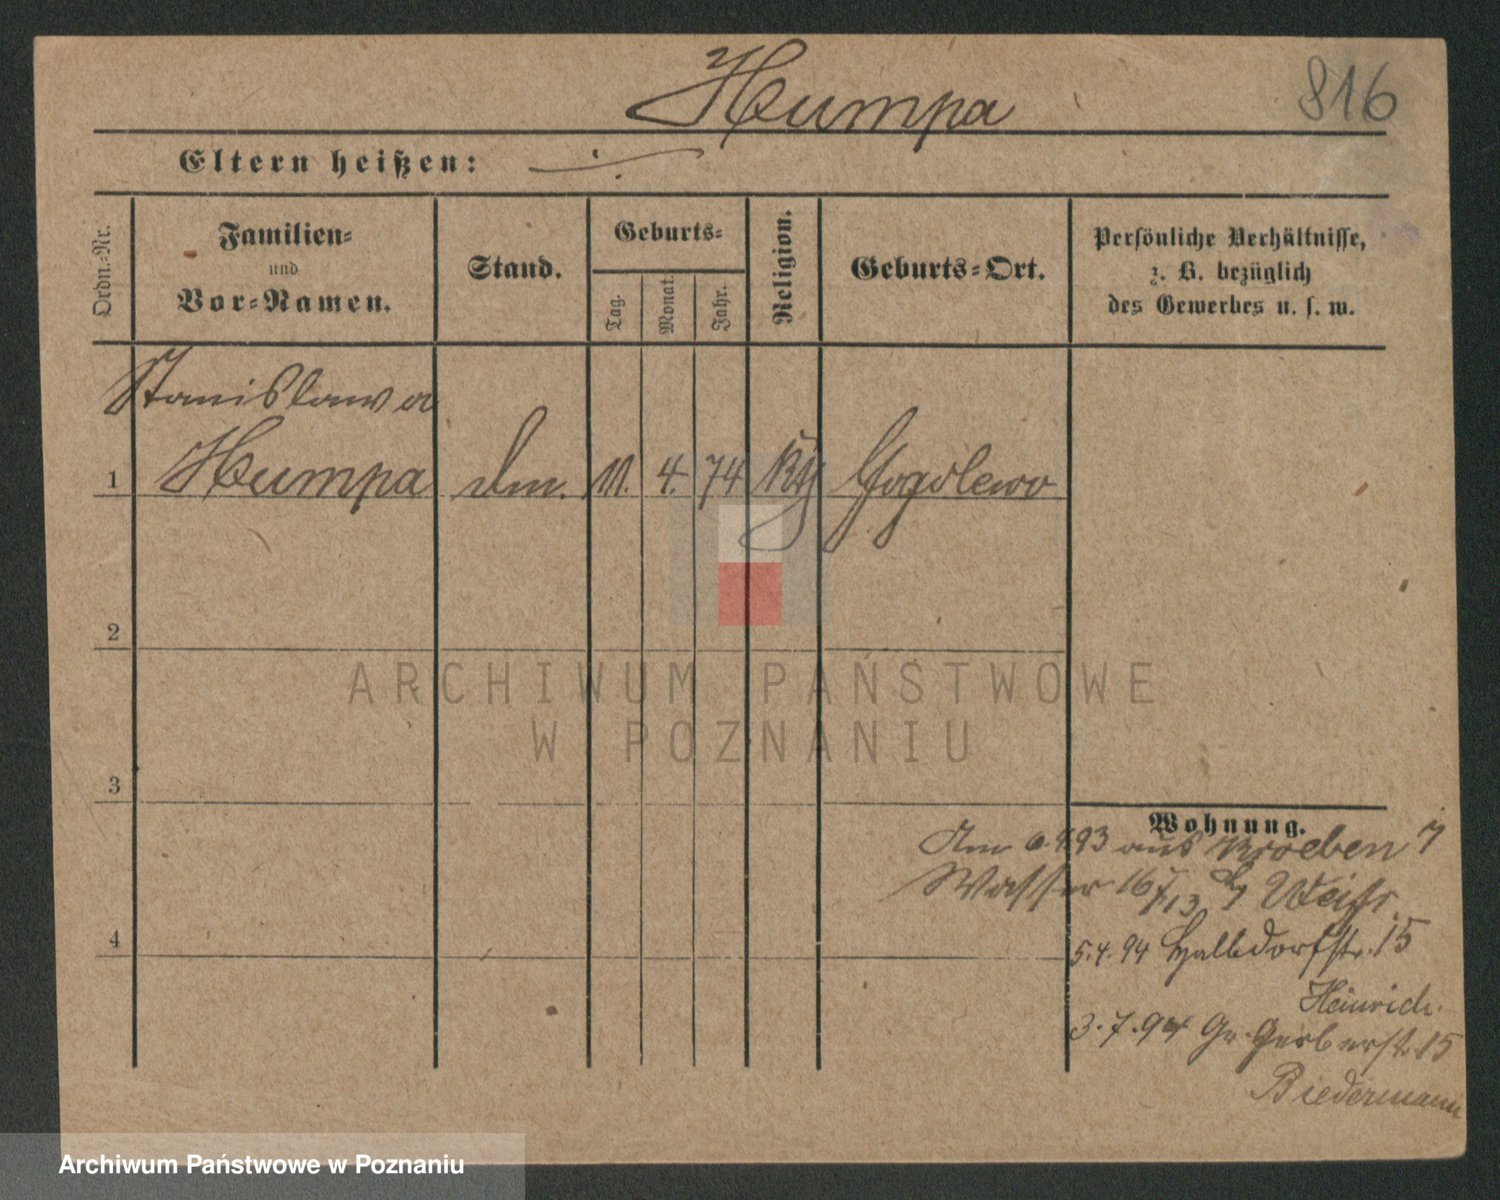 Humpa
816
Eltern heißen: ./.
Ordn.-Nr.
Familien-
und
Vor-Namen.
Stand.
Geburts-
Tag.
Monat.
Jahr.
Religion.
Geburts-Ort.
Persönliche Verhältnisse,
z. B. bezüglich
des Gewerbes u. s. w.
Stanislawa
1 Humpa 11. 4. 74 kth Gogolewo
2
3
4
Wohnung.
Am 93 aus Kroeben
Wasser 16 13 Weiss
5.4.94 Halbdorfstr. 15
Heinrich.
3.7.94 Gr. Gerberstr. 15
Biedermann
ARCHIWUM PAŃSTWOWE
W POZNANIU
Archiwum Państwowe w Poznaniu